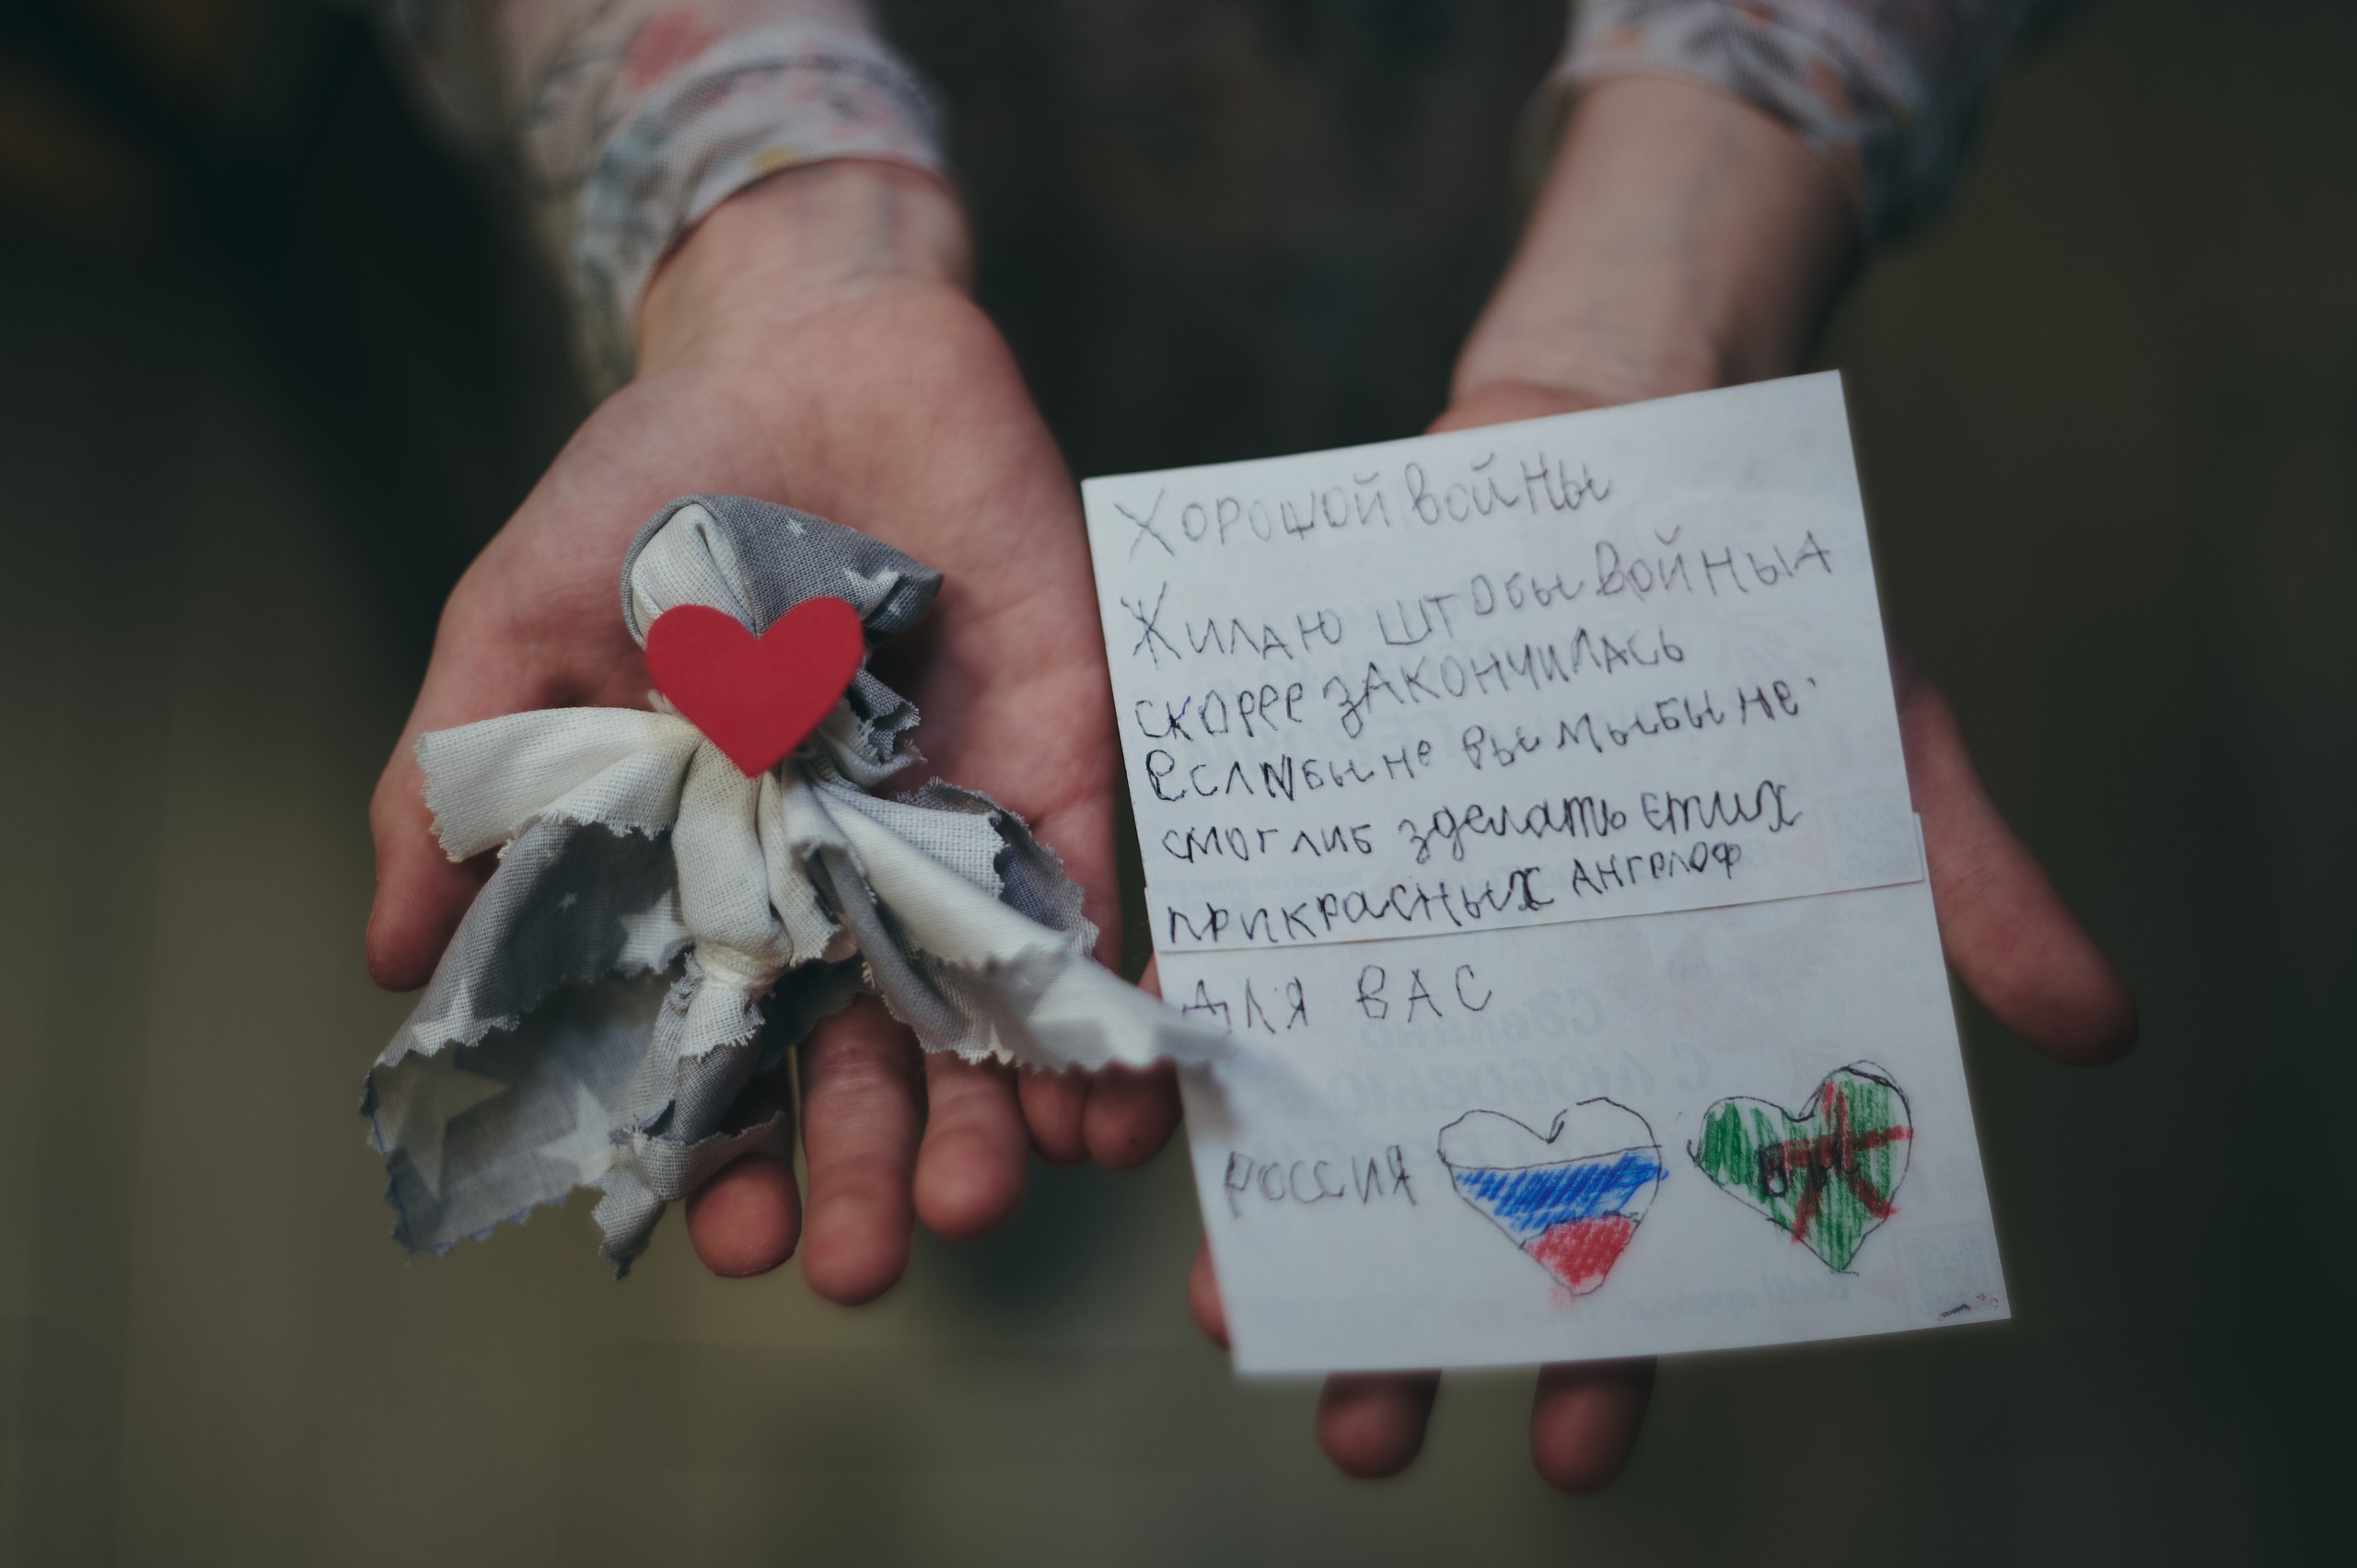 Хорошой войны
Жилаю штобы войныА
скорее закончилась
Если бы не вы мы бы не
смоглиб зделать етих
прикрасных ангелоф
для вас
Россия